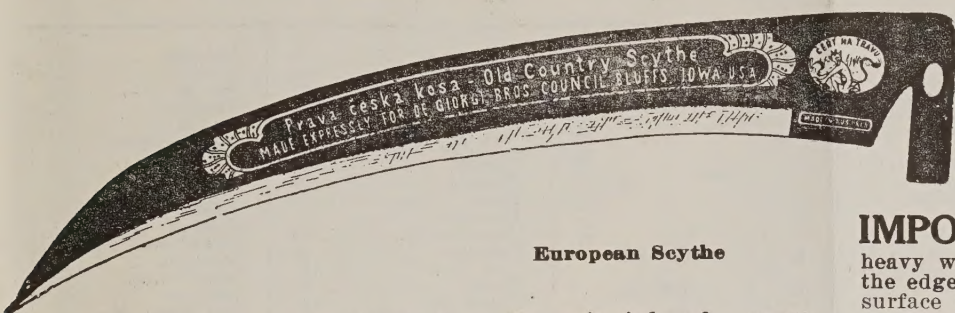 Prava česka kosa - Old Country Scythe
MADE EXPRESSLY FOR DE GIORGI BROS. COUNCIL BLUFFS, IOWA USA
ČERT NA TRAVU
MADE IN AUSTRIA
European Scythe
IMPO
heavy w
the edge
surface